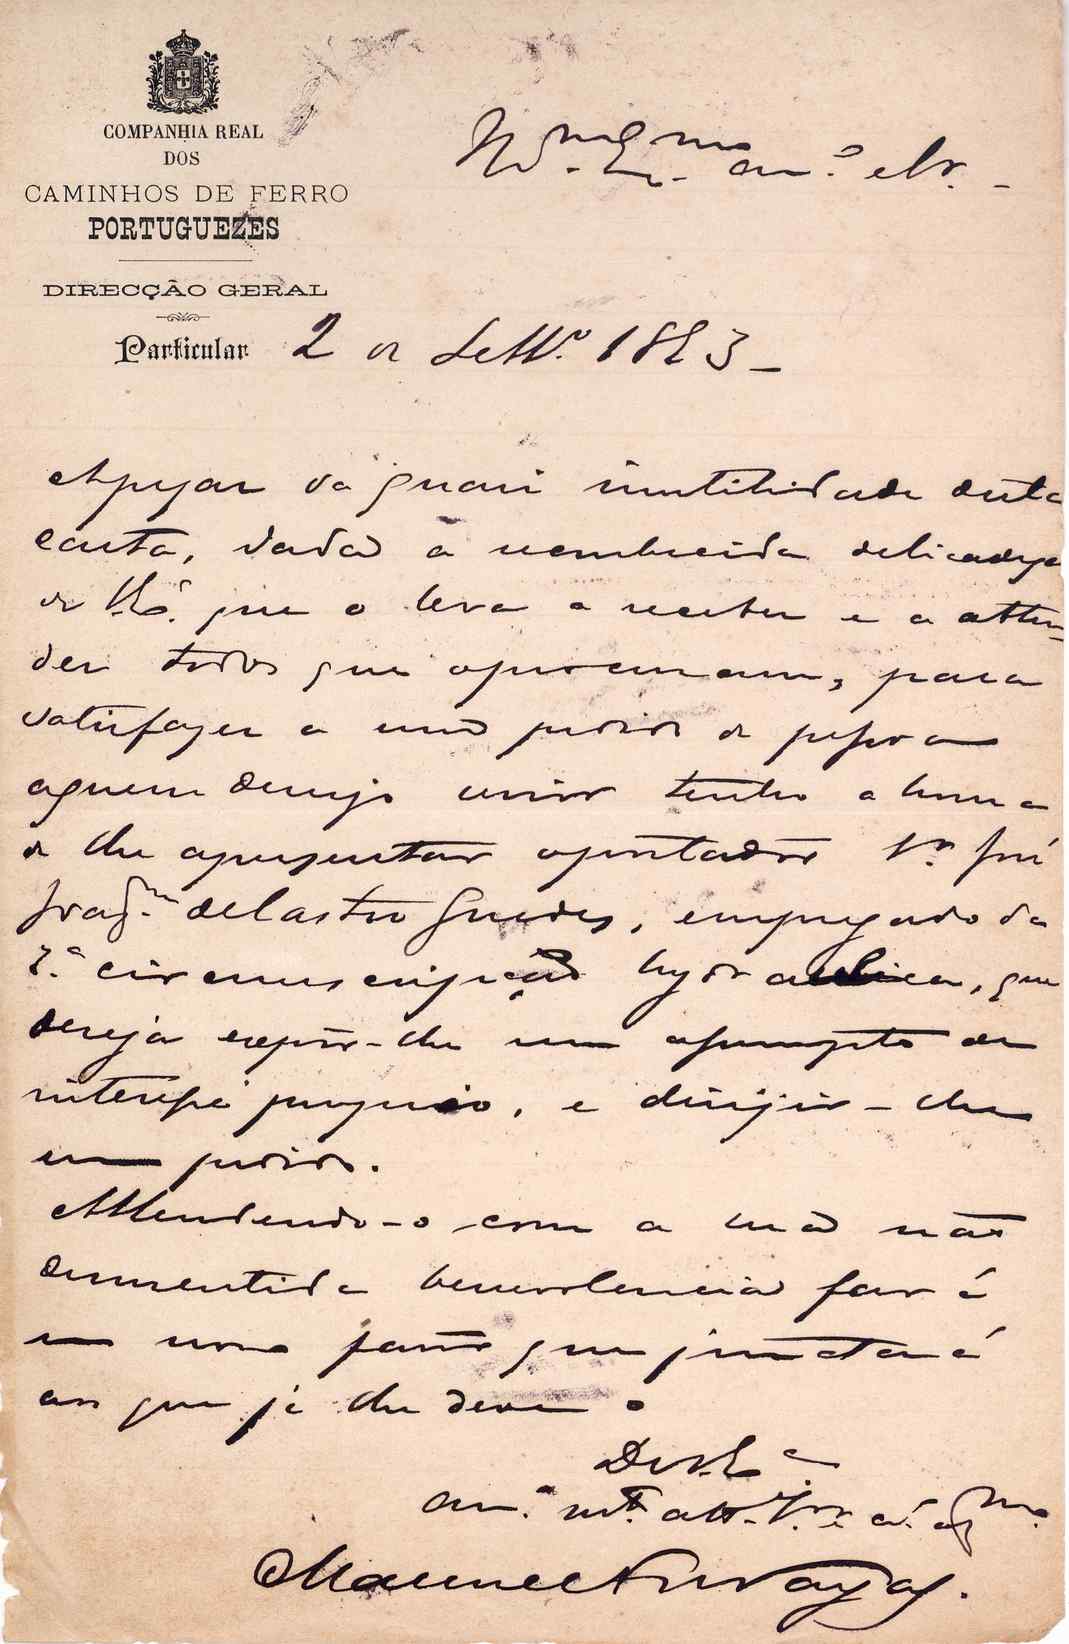 COMPANHIA REAL
DOS
CAMINHOS DE FERRO
PORTUGUEZES
DIRECÇÃO GERAL
Particular
Exmo am.º e Sr. -
2 de Settº. 1883 -
Apezar da quasi inutilidade desta
carta, dada a reconhecida delicadeza
de V. Exª. que o leva a receber e a atten-
der todos que o procuram, para
satisfazer a um pedido de pessoa
a quem desejo servir tenho a honra
de lhe apresentar o portador Sr. José
Joaqm. de Castro Guedes, empregado da
2.ª circumscripção hydraulica, que
deseja expôr-lhe um assumpto de
interesse proprio, e dirigir-lhe
um pedido.
Attendendo-o com a sua não
desmentida benevolencia fará
um novo favor que juntará
aos que já lhe deve o
De V. Exª
am.º mtº. attº. Vor. e cº. obgmo.